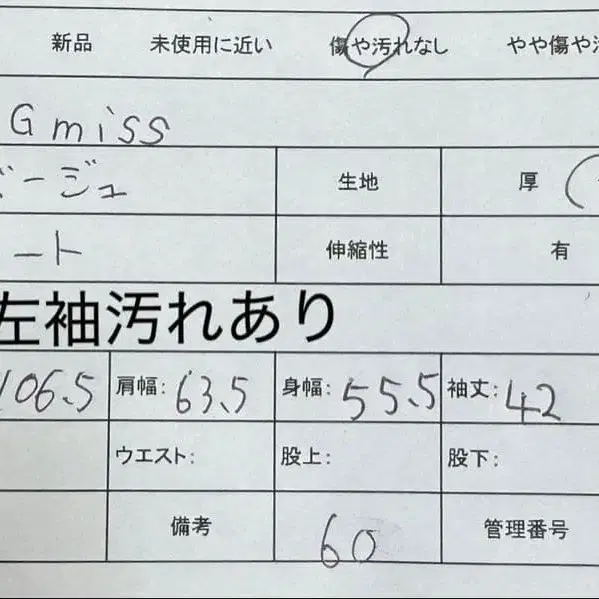 新品 未使用に近い 傷や汚れなし やや傷や
G miss
ベージュ 生地 厚
ート 伸縮性 有
左袖汚れあり
106.5 肩幅: 63.5 身幅: 55.5 袖丈: 42
ウエスト: 股上: 股下:
備考 60 管理番号